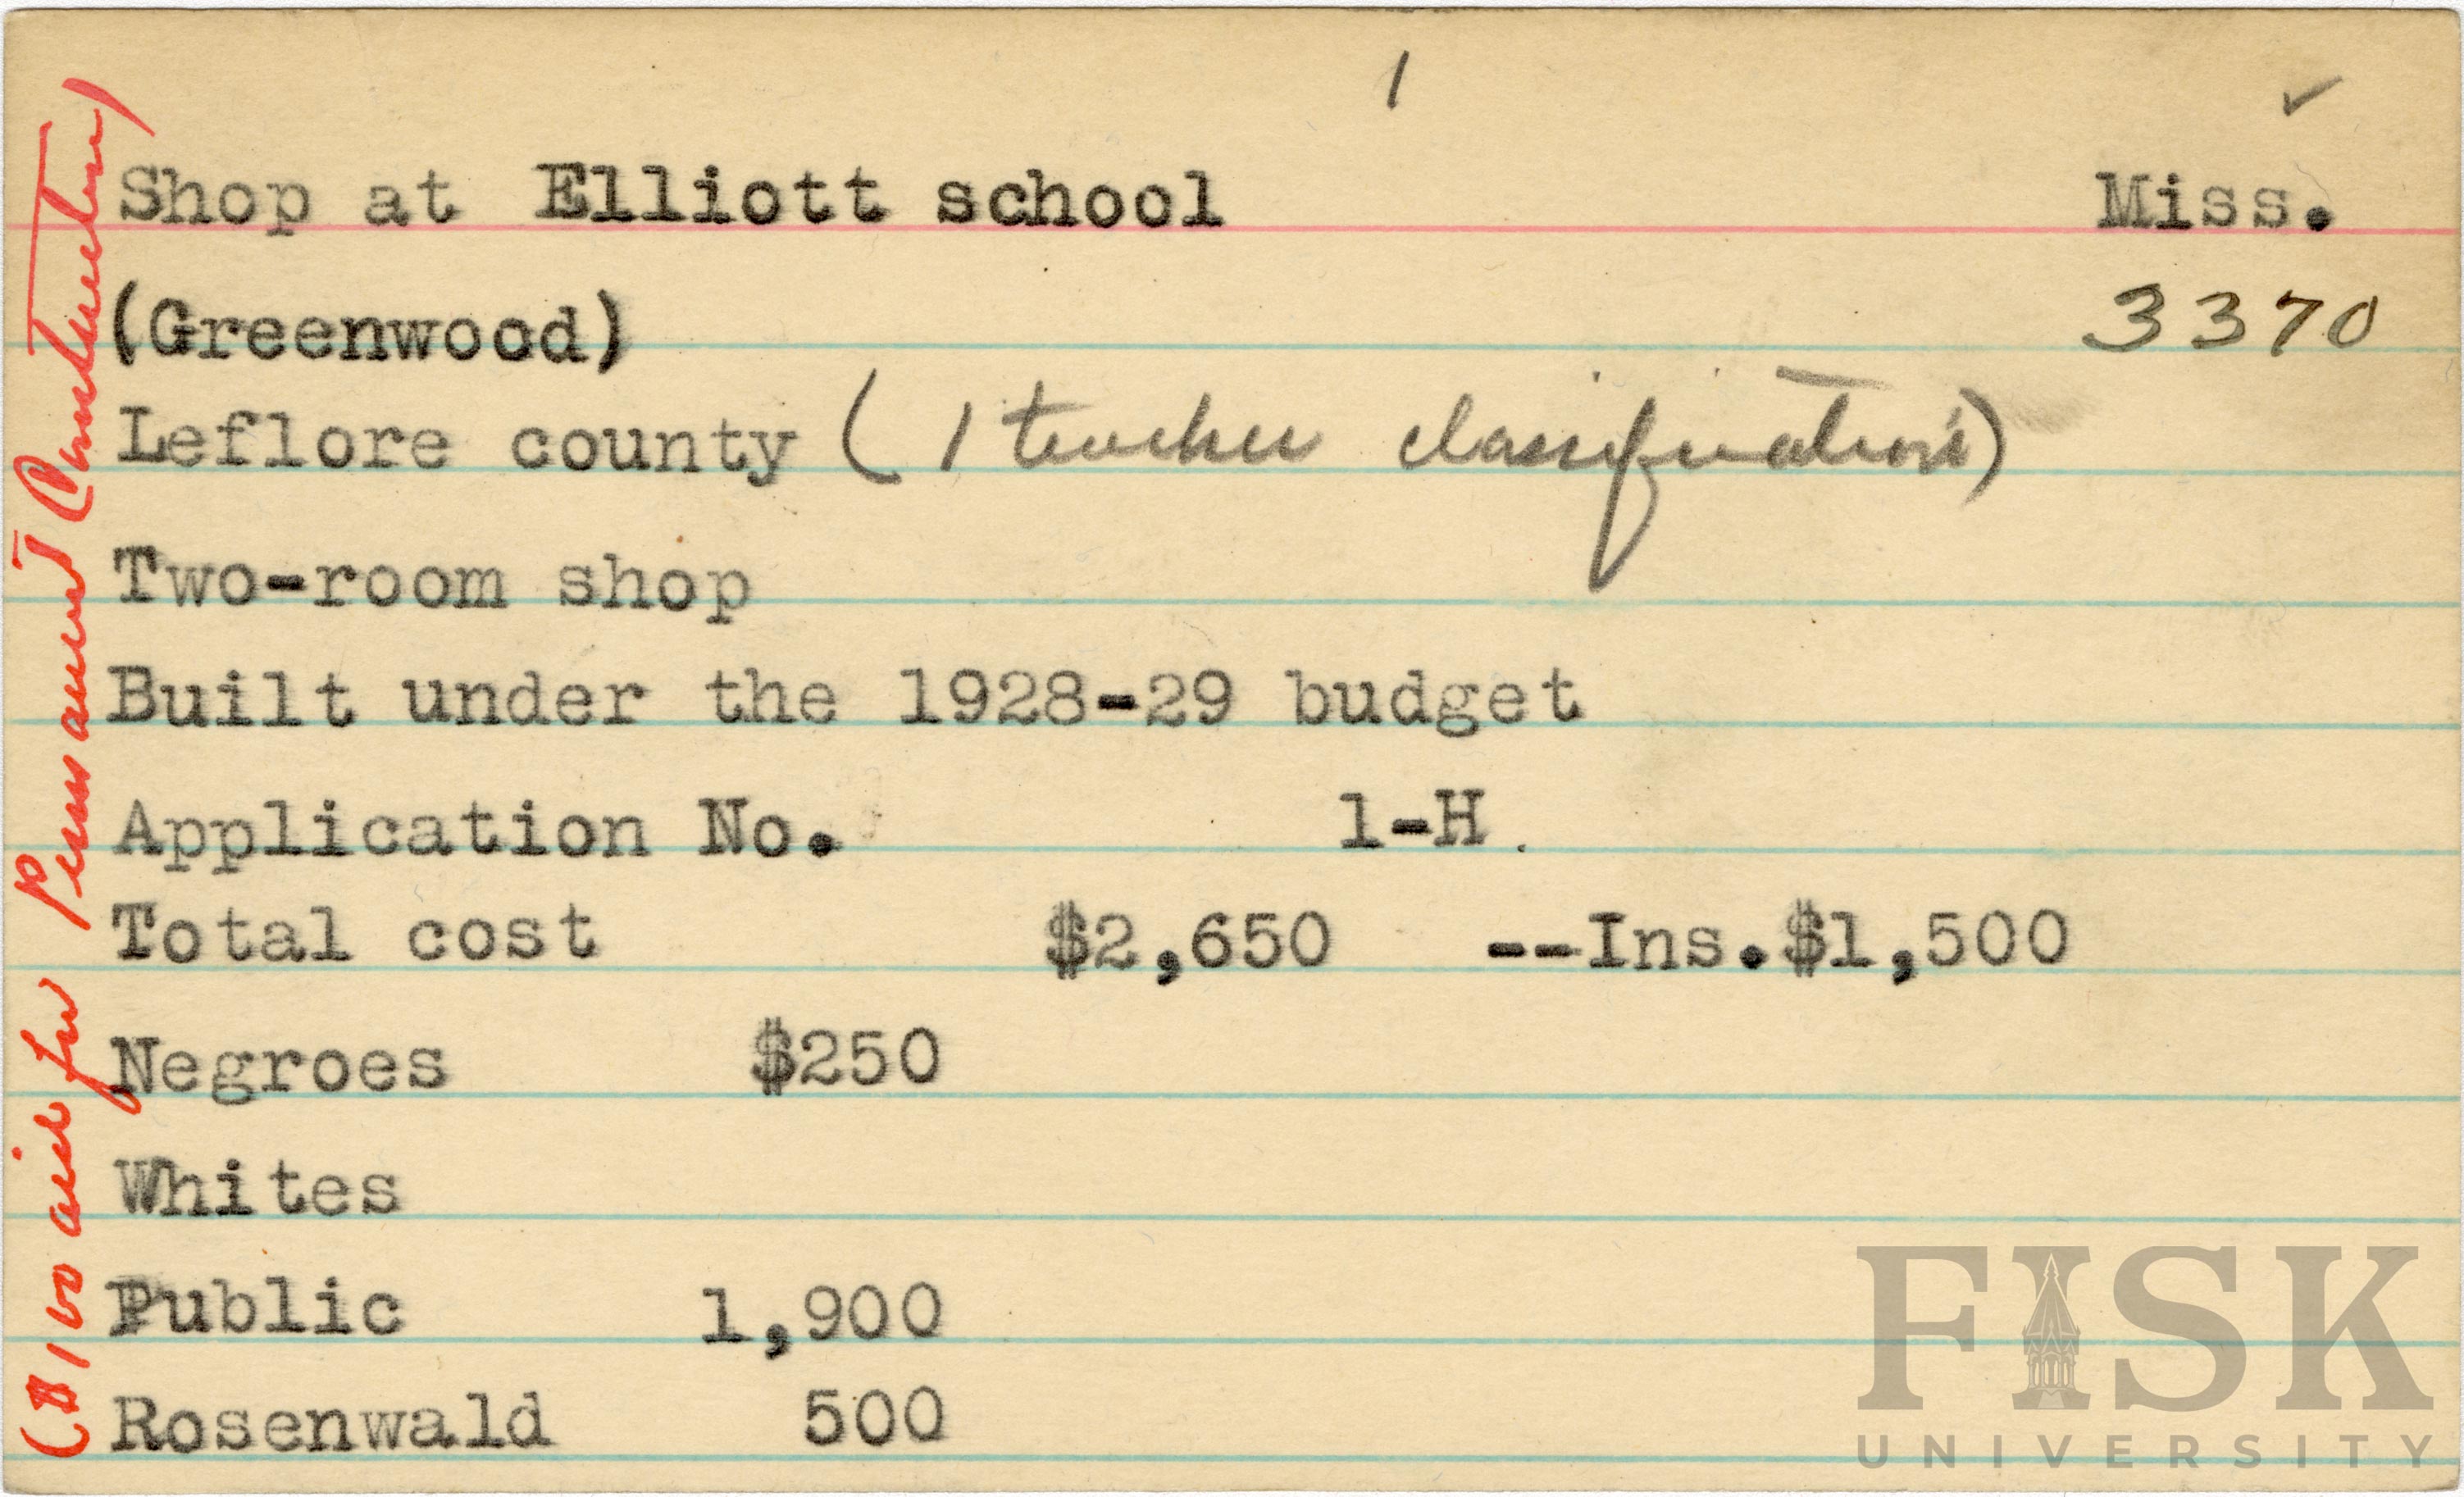 1 ✓
Shop at Elliott school Miss.
(Greenwood) 3370
Leflore county ( 1 teacher classification)
Two-room shop
Built under the 1928-29 budget
Application No. 1-H.
Total cost $2,650 --Ins.$1,500
Negroes $250
Whites
Public 1,900
Rosenwald 500
($100 aid for Permanent Construction)
FISK
UNIVERSITY